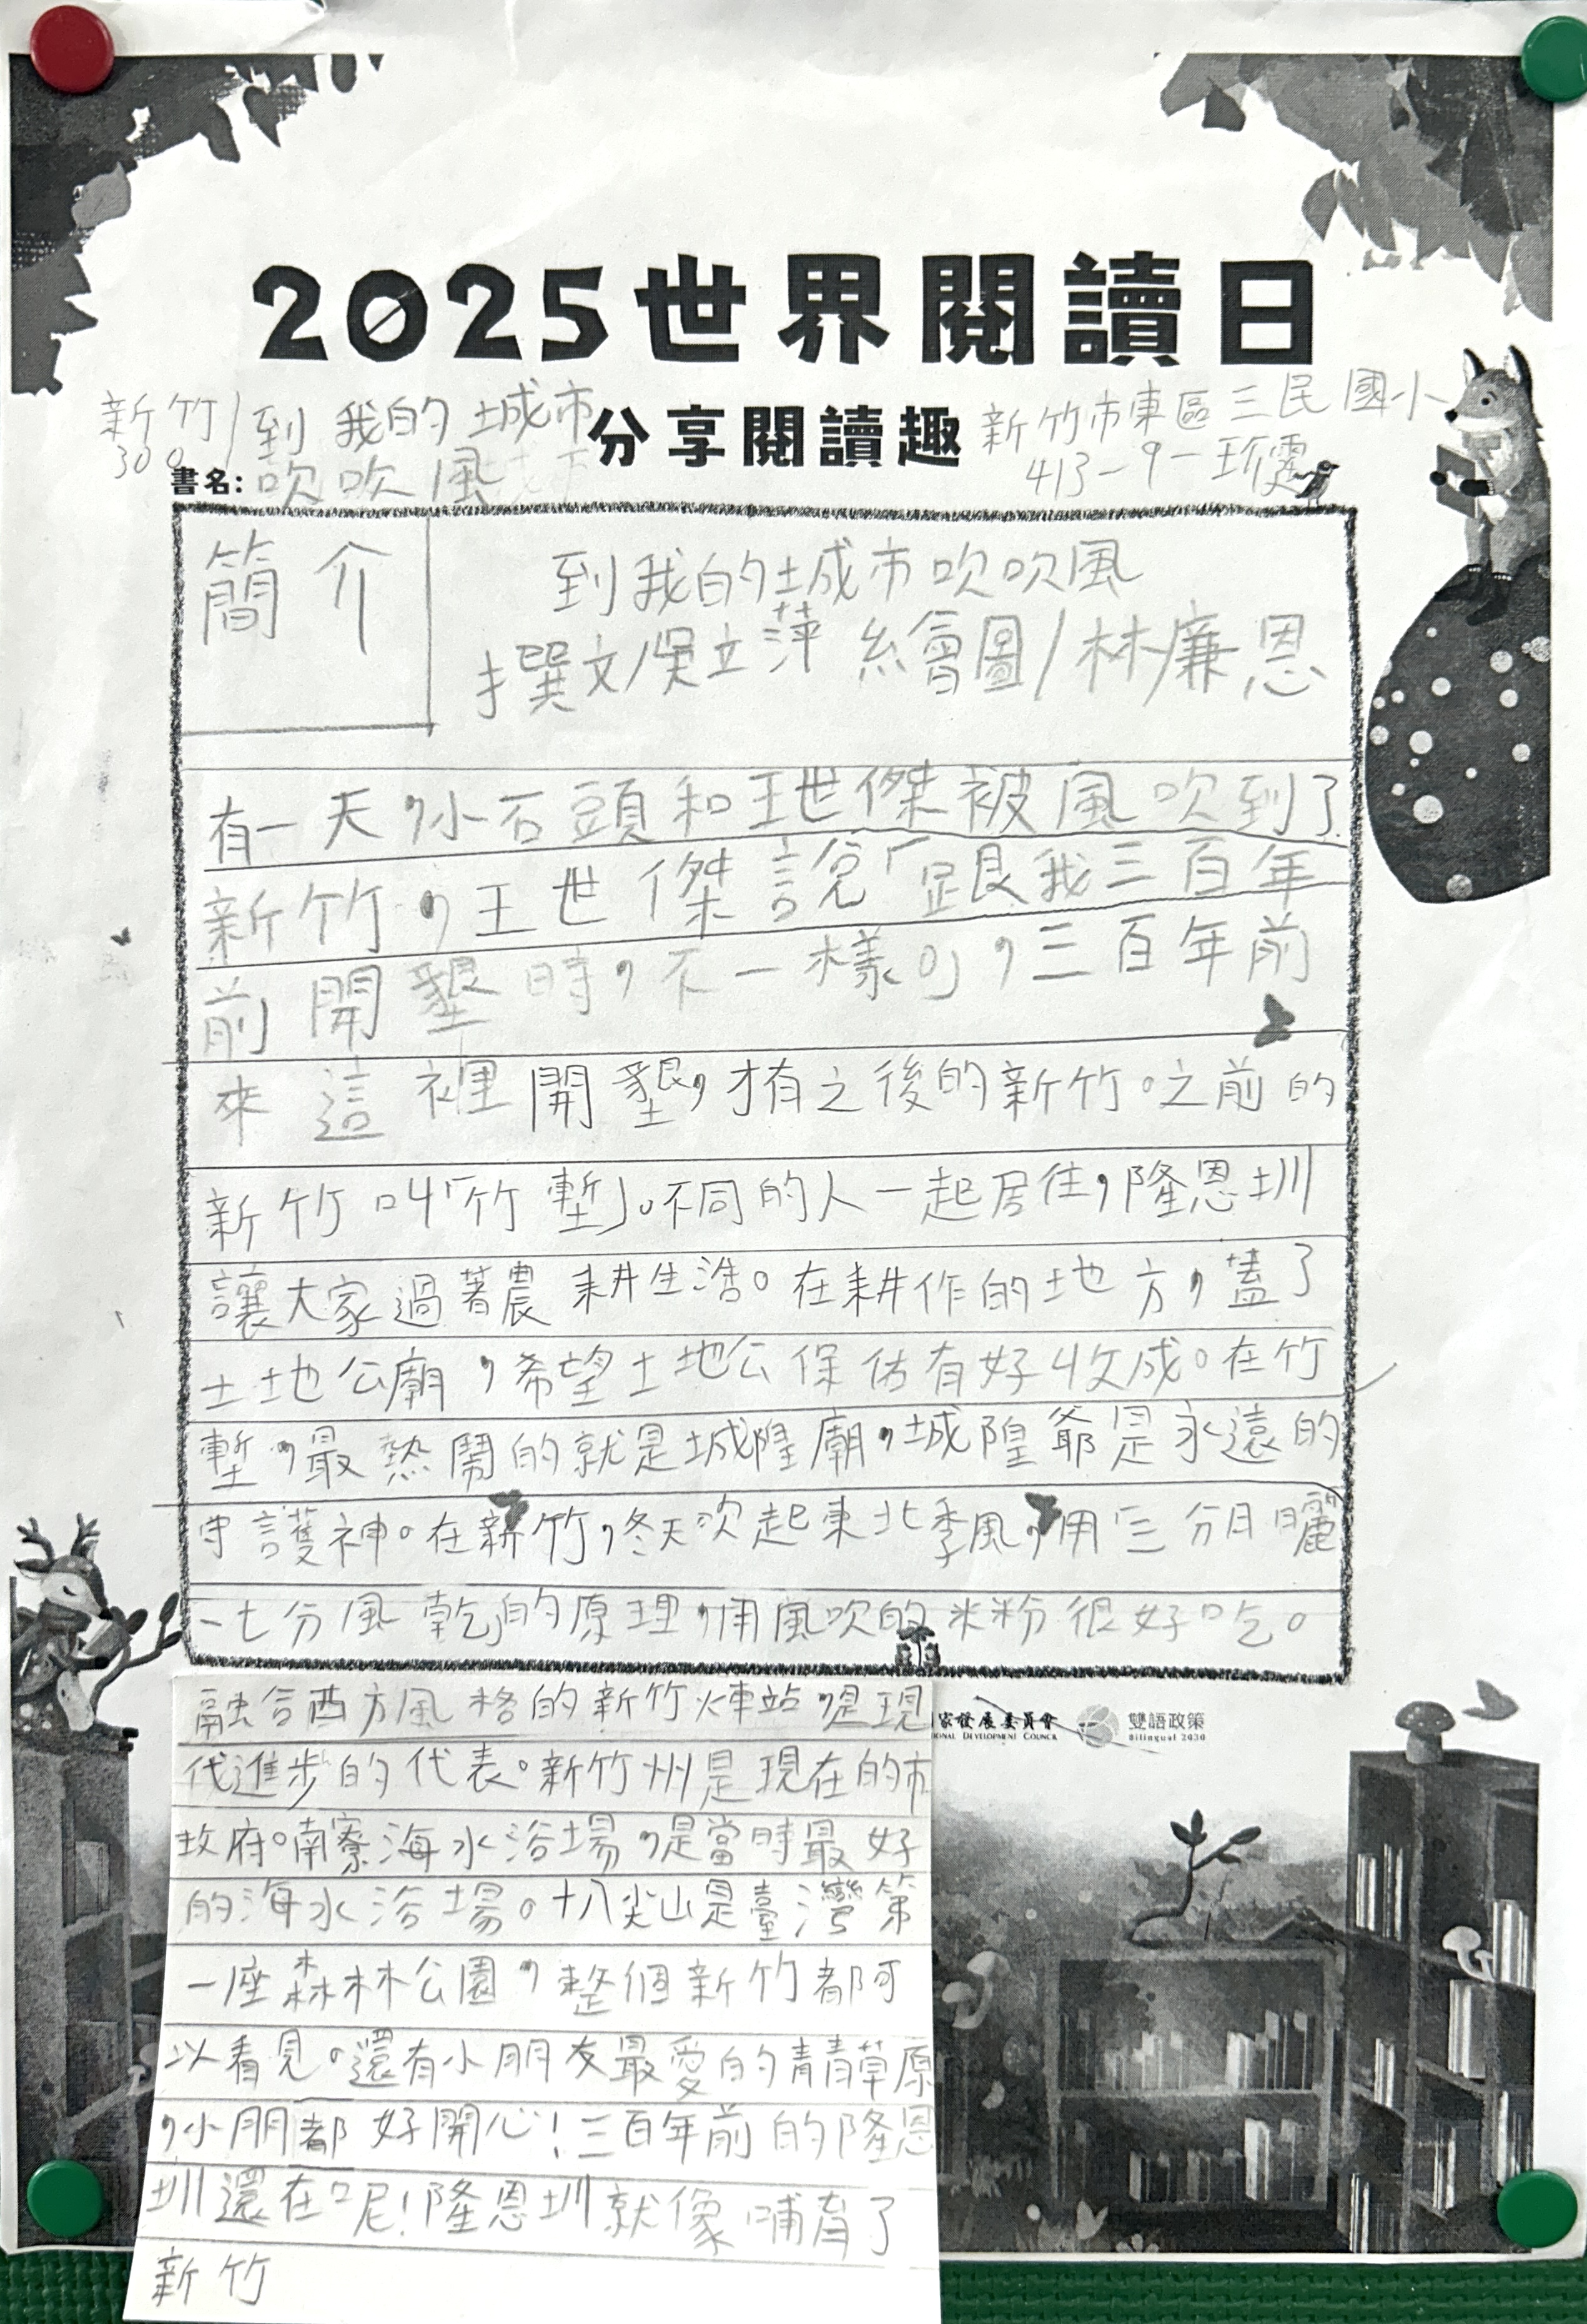 2025世界閱讀日
分享閱讀趣
新竹/到我的城市
300
吹吹風
書名:
新竹市東區三民國小
413-9-珍霙
簡介
到我的城市吹吹風
撰文/吳立萍 繪圖/林廉恩
有一天,小石頭和王世傑被風吹到了
新竹,王世傑說「跟我三百年
前開墾時,不一樣。」,三百年前
來這裡開墾,才有之後的新竹。之前的
新竹叫「竹塹」。不同的人一起居住,隆恩圳
讓大家過著農耕生活。在耕作的地方,蓋了
土地公廟,希望土地公保佑有好收成。在竹
塹,最熱鬧的就是城隍廟,城隍爺是永遠的
守護神。在新竹,冬天吹起東北季風,用「三分日曬
七分風乾」的原理,用風吹的米粉很好吃。
融合西方風格的新竹火車站,是現
代進步的代表。新竹州是現在的市
政府。南寮海水浴場,是當時最好
的海水浴場。十八尖山是臺灣第
一座森林公園,整個新竹都可
以看見。還有小朋友最愛的青青草原
,小朋都好開心!三百年前的隆恩
圳還在呢!隆恩圳就像哺育了
新竹
家發展委員會
IONAL DEVELOPMENT COUNCIL
雙語政策
Bilingual 2030